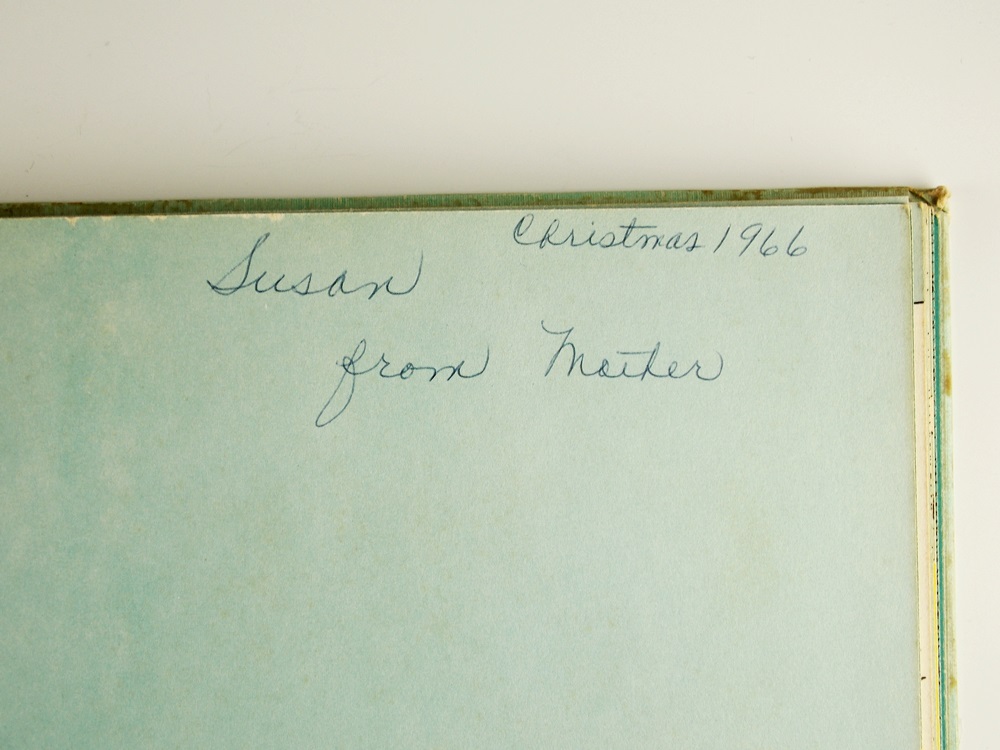 Christmas 1966
Susan
from Mother